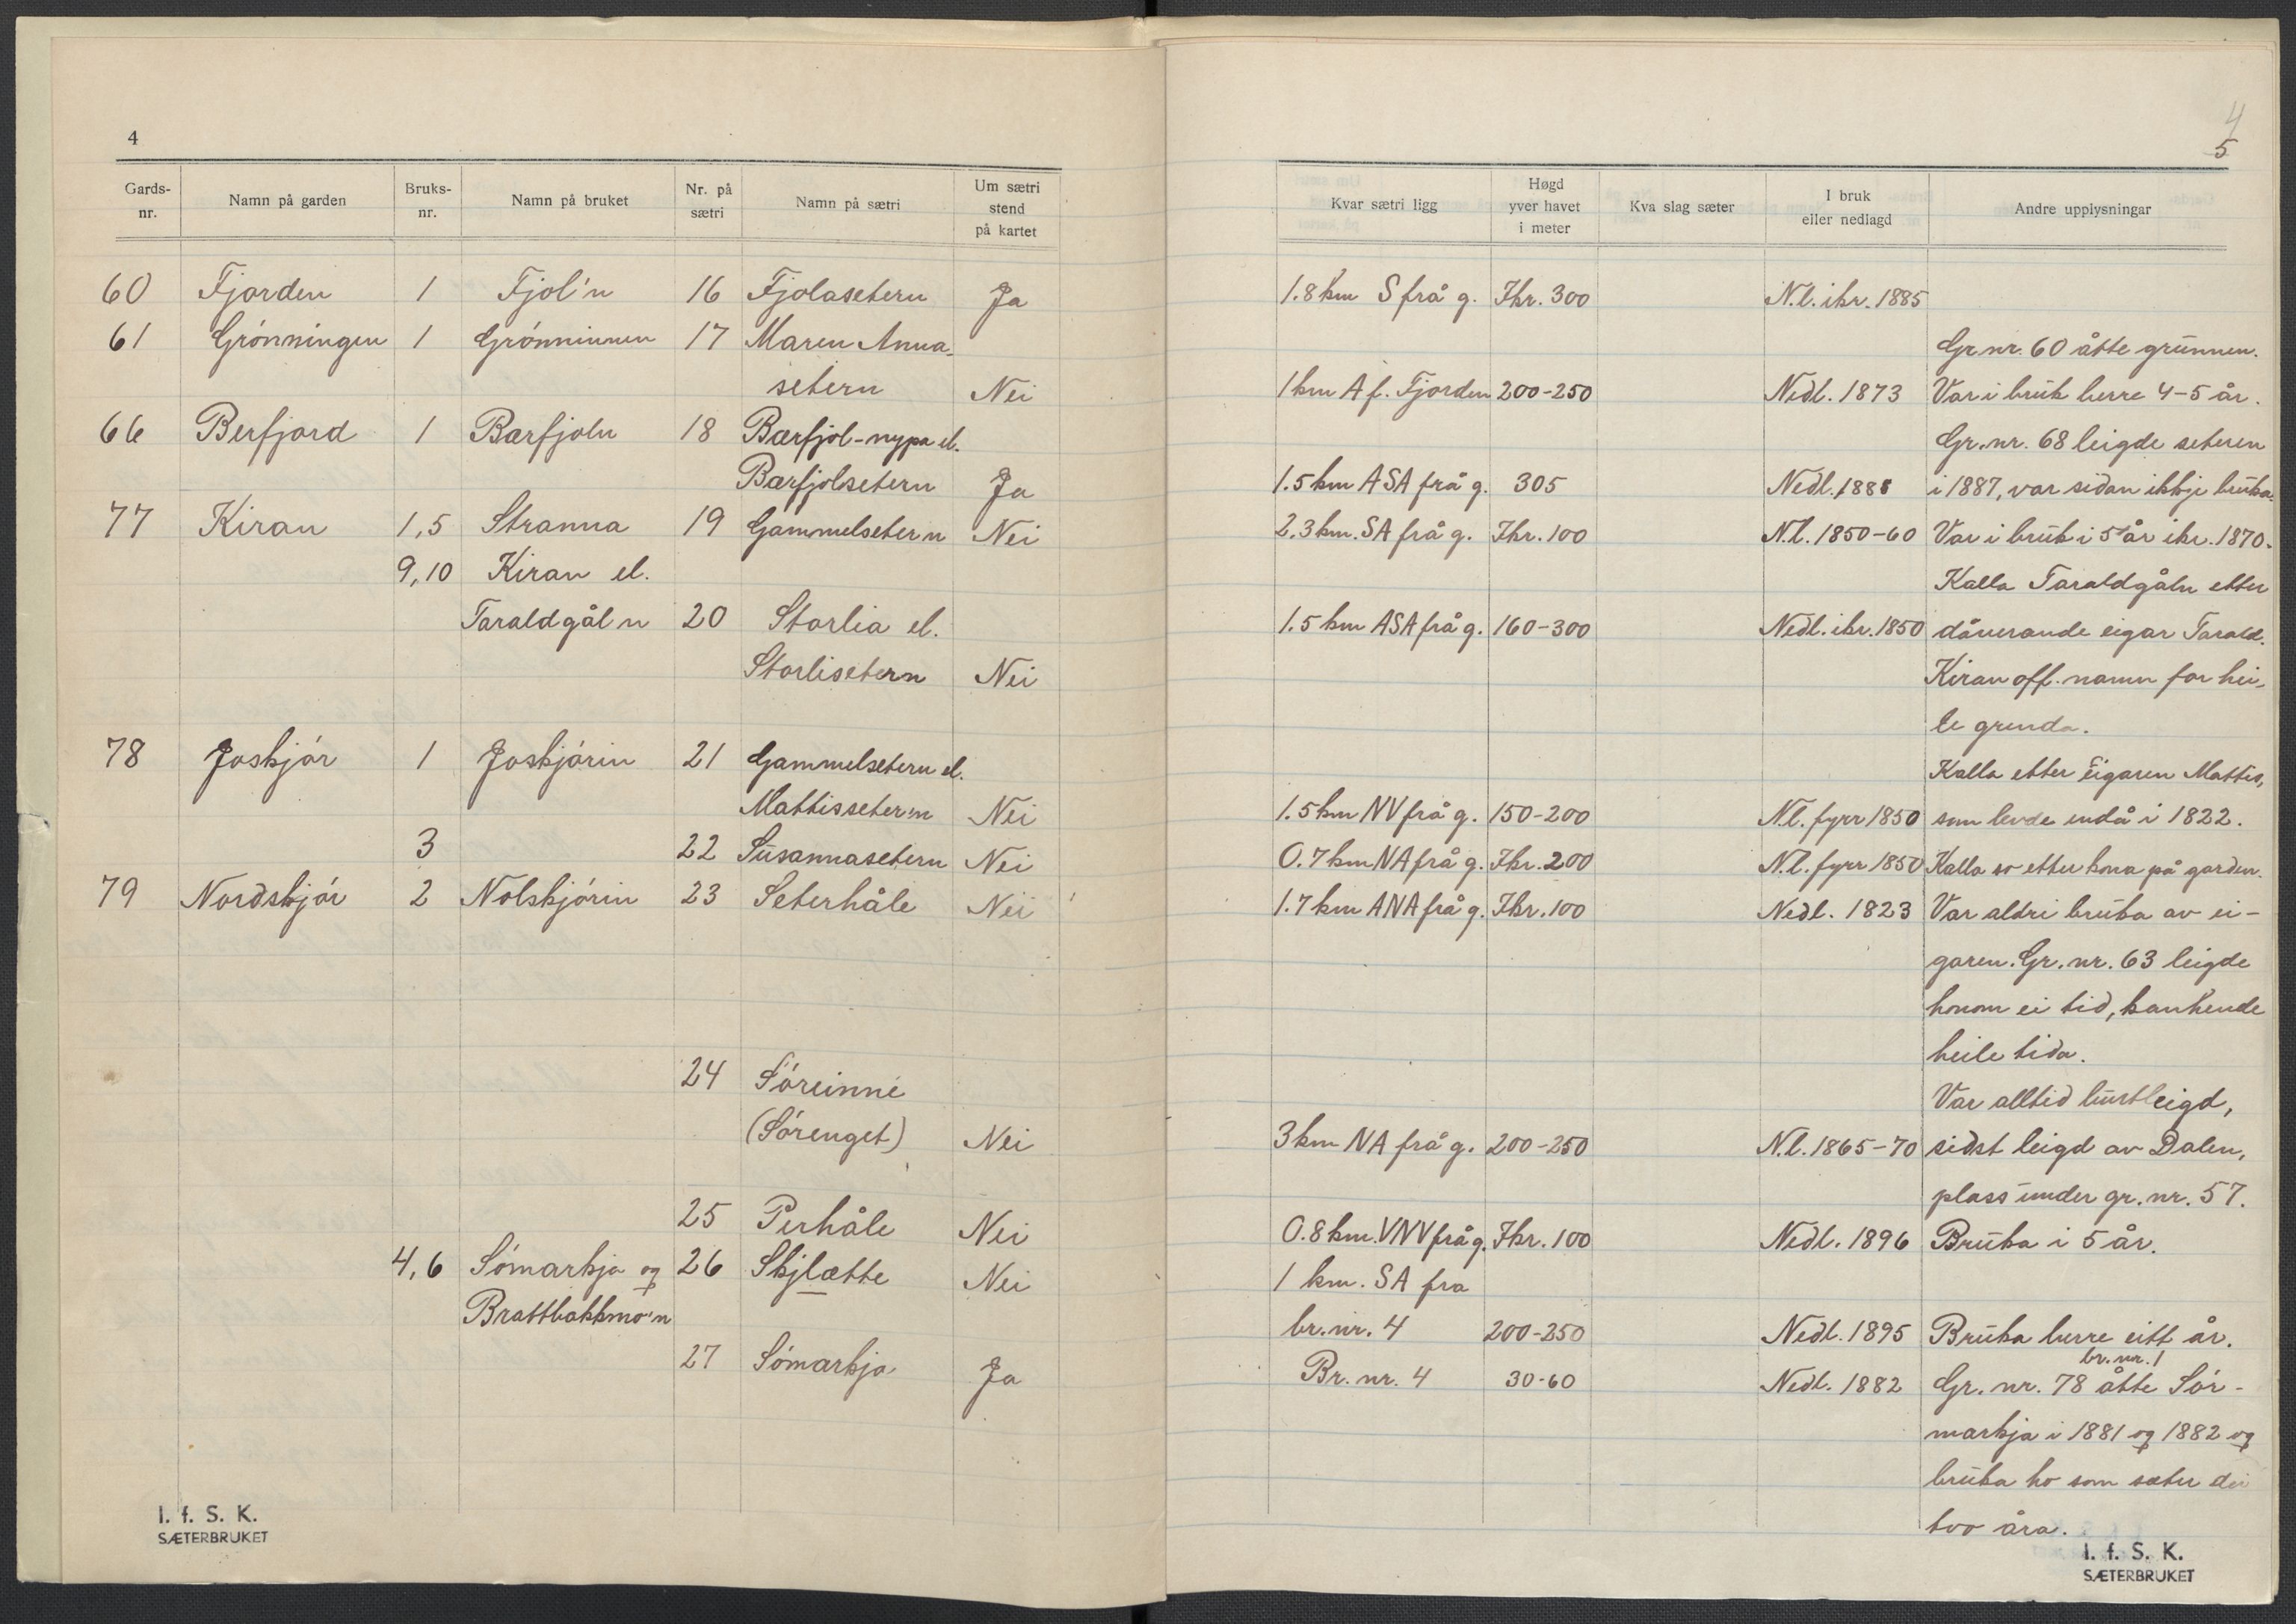 4
Gards-nr. Namn på garden Bruks-nr. Namn på bruket Nr. på sætri Namn på sætri Um sætri stend på kartet
60 Fjorden 1 Fjol'n 16 Fjolasetern Ja
61 Grönningen 1 Grönninnen 17 Maren Anna-
setern Nei
66 Berfjord 1 Bærfjoln 18 Bærfjol-nypa el.
Bærfjolsetern Ja
77 Kiran 1,5 Stranna 19 Gammelsetern Nei
9,10 Kiran el.
Taraldgåln 20 Storlia el.
Storlisetern Nei
78 Joskjör 1 Joskjörin 21 Gammelsetern el.
Mattisseter'n Nei
3 22 Susannasetern Nei
79 Nordskjör 2 Nolskjörin 23 Seterhåle Nei
24 Söreinne
(Sörenget) Nei
25 Perhåle Nei
4,6 Sömarkja og 26 Skjlætte Nei
Brattbakkmo'n
27 Sömarkja Ja
I. f. S. K.
SÆTERBRUKET
4
5
Kvar sætri ligg Høgd yver havet i meter Kva slag sæter I bruk eller nedlagd Andre upplysningar
1.8 km S frå g. Ikr. 300 N.l. ikr. 1885
Gr.nr. 60 åtte grunnen.
1 km A f. Fjorden 200-250 Nedl. 1873 Var i bruk berre 4-5 år.
Gr.nr. 68 leigde seteren
1.5 km ASA frå g. 305 Nedl. 1888 i 1887, var sidan ikkje bruka.
2.3 km. SA frå g. Ikr. 100 N.l. 1850-60 Var i bruk i 5 år ikr. 1870.
Kalla Taraldgåln etter
1.5 km ASA frå g. 160-300 Nedl. ikr. 1850 dåverande eigar Tarald.
Kiran off. namn for hei-
le grenda.
Kalla etter eigaren Mattis,
1.5 km NV frå g. 150-200 N.l. fyrr 1850 som levde endå i 1822.
0.7 km NA frå g. Ikr. 200 N.l. fyrr 1850 Kalla so etter kona på garden.
1.7 km ANA frå g. Ikr. 100 Nedl. 1823 Var aldri bruka av ei-
garen. Gr. nr. 63 leigde
honom ei tid, kanhende
heile tida.
Var alltid burtleigd,
3 km NA frå g. 200-250 N.l. 1865-70 sidst leigd av Dalen,
plass under gr. nr. 57.
0.8 km. VNV frå g. Ikr. 100 Nedl. 1896 Bruka i 5 år.
1 km. SA fra
br. nr. 4 200-250 Nedl. 1895 Bruka berre eitt år.
br. nr. 1
Br. nr. 4 30-60 Nedl. 1882 Gr. nr. 78 åtte Sör-
markja i 1881 og 1882 og
bruka ho som sæter dei
two åra.
I. f. S. K.
SÆTERBRUKET